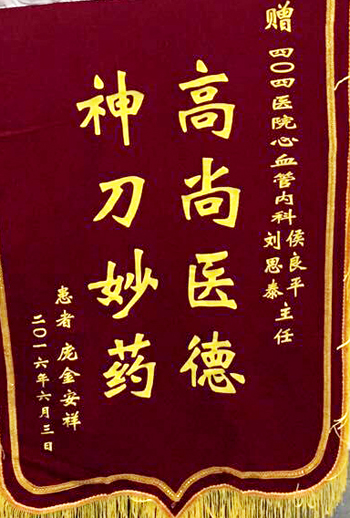 赠 四〇四医院心血管内科侯良平刘思泰主任
高尚医德
神刀妙药
患者 庞金安祥
二〇一六年六月三日